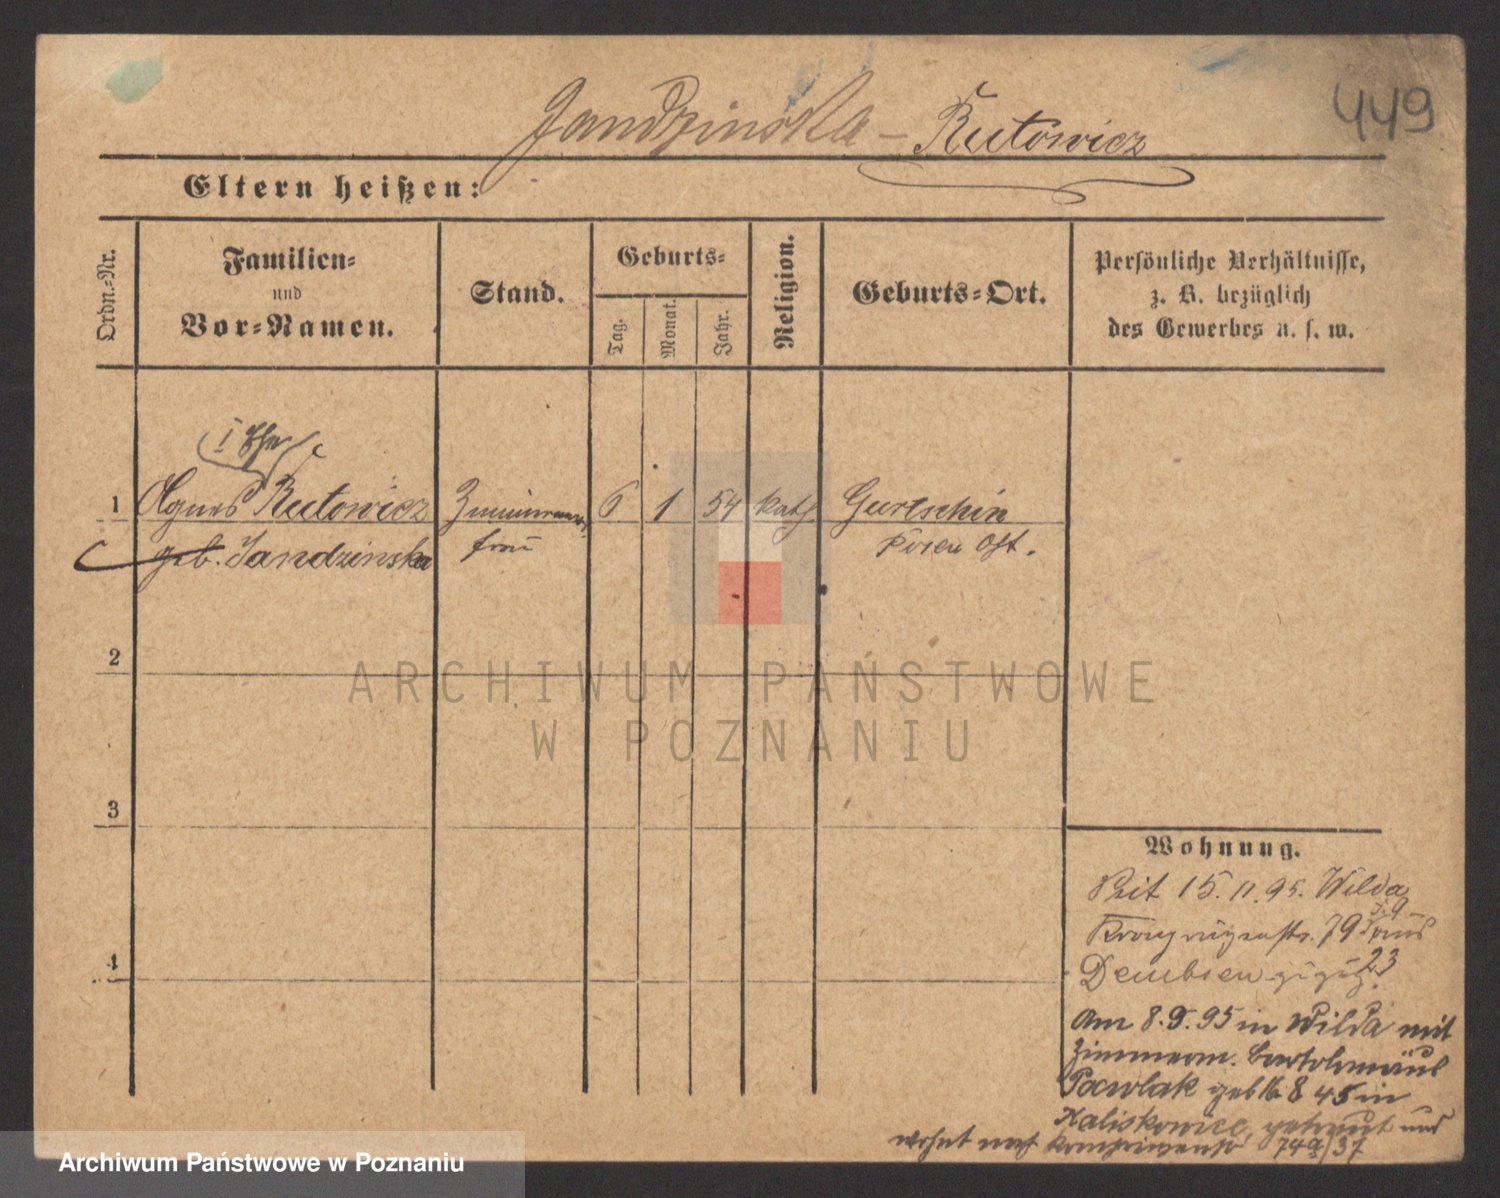 449
Jandzinska - Rutowicz
Eltern heißen:
Ordn.-Nr.
Familien-
und
Vor-Namen.
Stand.
Geburts-
Tag.
Monat.
Jahr.
Religion.
Geburts-Ort.
Persönliche Verhältnisse,
z. B. bezüglich
des Gewerbes u. s. w.
I Ehe
1 Agnes Rutowicz Zimmermanns 6 1 54 kath Gurtschin
geb. Jandzinska frau Posen Ost.
2
3
4
ARCHIWUM PAŃSTWOWE
W POZNANIU
Wohnung.
Seit 15. 11. 95. Wilda
Kronprinzenstr. 79
Dembsen
23
Am 8. 9. 95 in Wilda mit
Zimmerm. Bartolomäus
Pawlak geb 16 8 45 in
Kaliskowice getraut und
wohnt noch Kronprinzenstr 74a/37
Archiwum Państwowe w Poznaniu